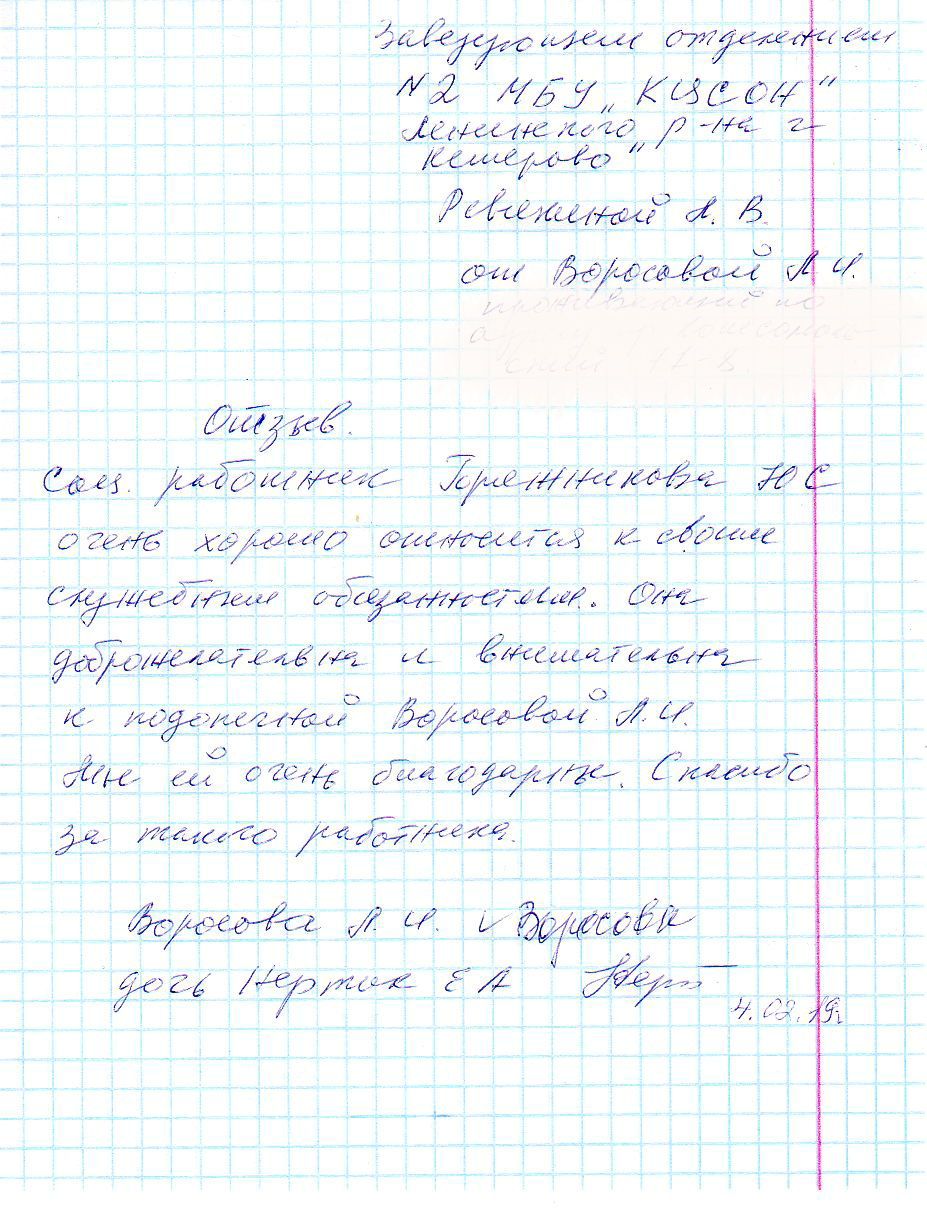 Заведующем отделением
N2 МБУ „КЦСОН"
Ленинского р-на г
Кемерово"
Ревякиной Н. В.
от Воросовой Л И.
проживающей по
Отзыв.
Соц. работник Горяжникова Ю С
очень хорошо относится к своим
служебным обязанностям. Она
доброжелательна и внимательна
к подопечной Воросовой Л.И.
Мы ей очень благодарны. Спасибо
за такого работника.
Воросова Л. И. v Воросова
дочь Нертик Е А
4.02.19г